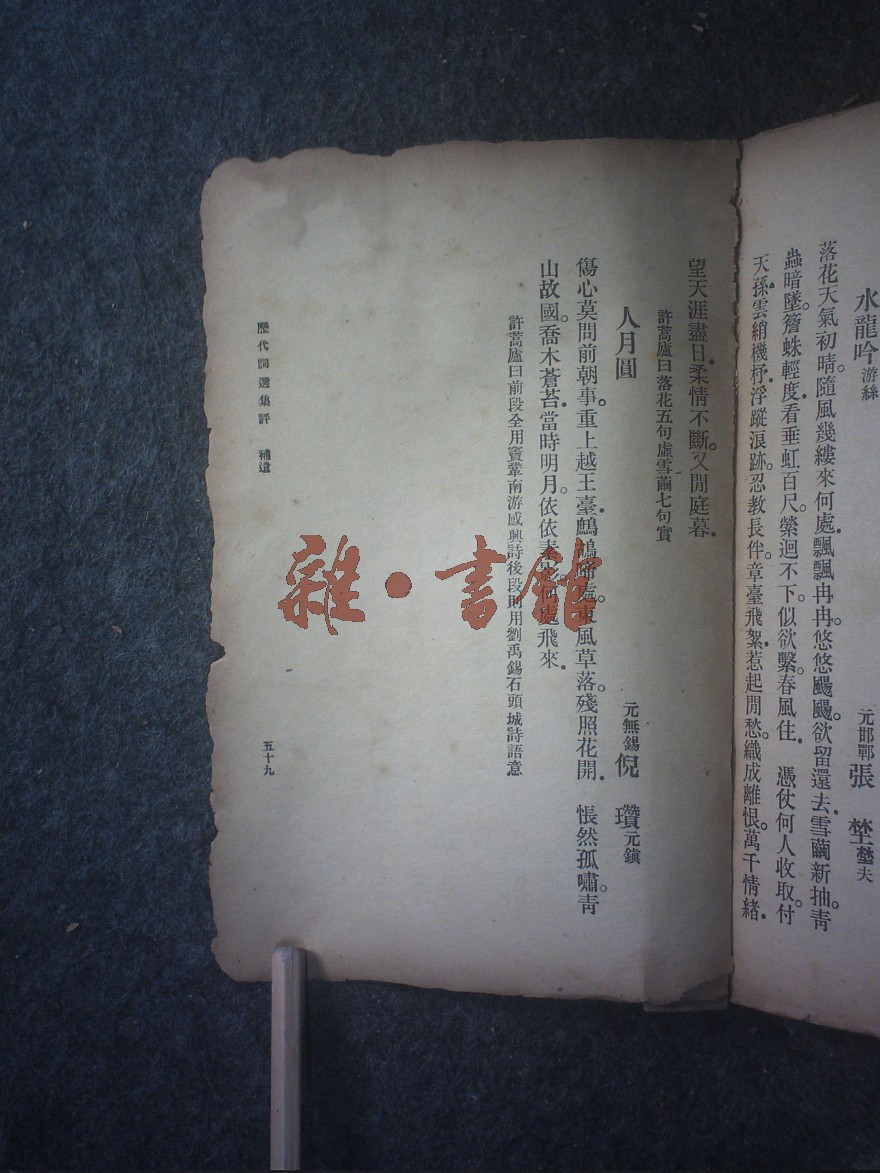 水龍吟 游絲
元邯鄲 張 埜 埜夫
落花天氣初晴隨風幾縷來何處.飄飄冉冉。悠悠颺颺。欲留還去.雪繭新抽。青
蟲暗墜。簷蛛輕度.看垂虹百尺。縈迴不下。似欲繫。春風住.　憑仗何人收取.付
天孫.雲綃機杼.浮蹤浪跡。忍教長伴。章臺飛絮.惹起閒愁。織成離恨。萬千情緒.
望天涯盡日.柔情不斷。又閒庭暮.
許蒿廬曰落花五句虛雪繭七句實
人月圓
元無錫 倪 瓚 元鎮
傷心莫問前朝事。重上越王臺.鷓鴣啼處。東風草落。殘照花開.　悵然孤嘯。青
山故國。喬木蒼苔.當時明月。依依素影。何處飛來.
許蒿廬曰前段全用竇鞏南游感興詩後段則用劉禹錫石頭城詩語意
歷代詞選集評 補遺
五十九
雜·書館